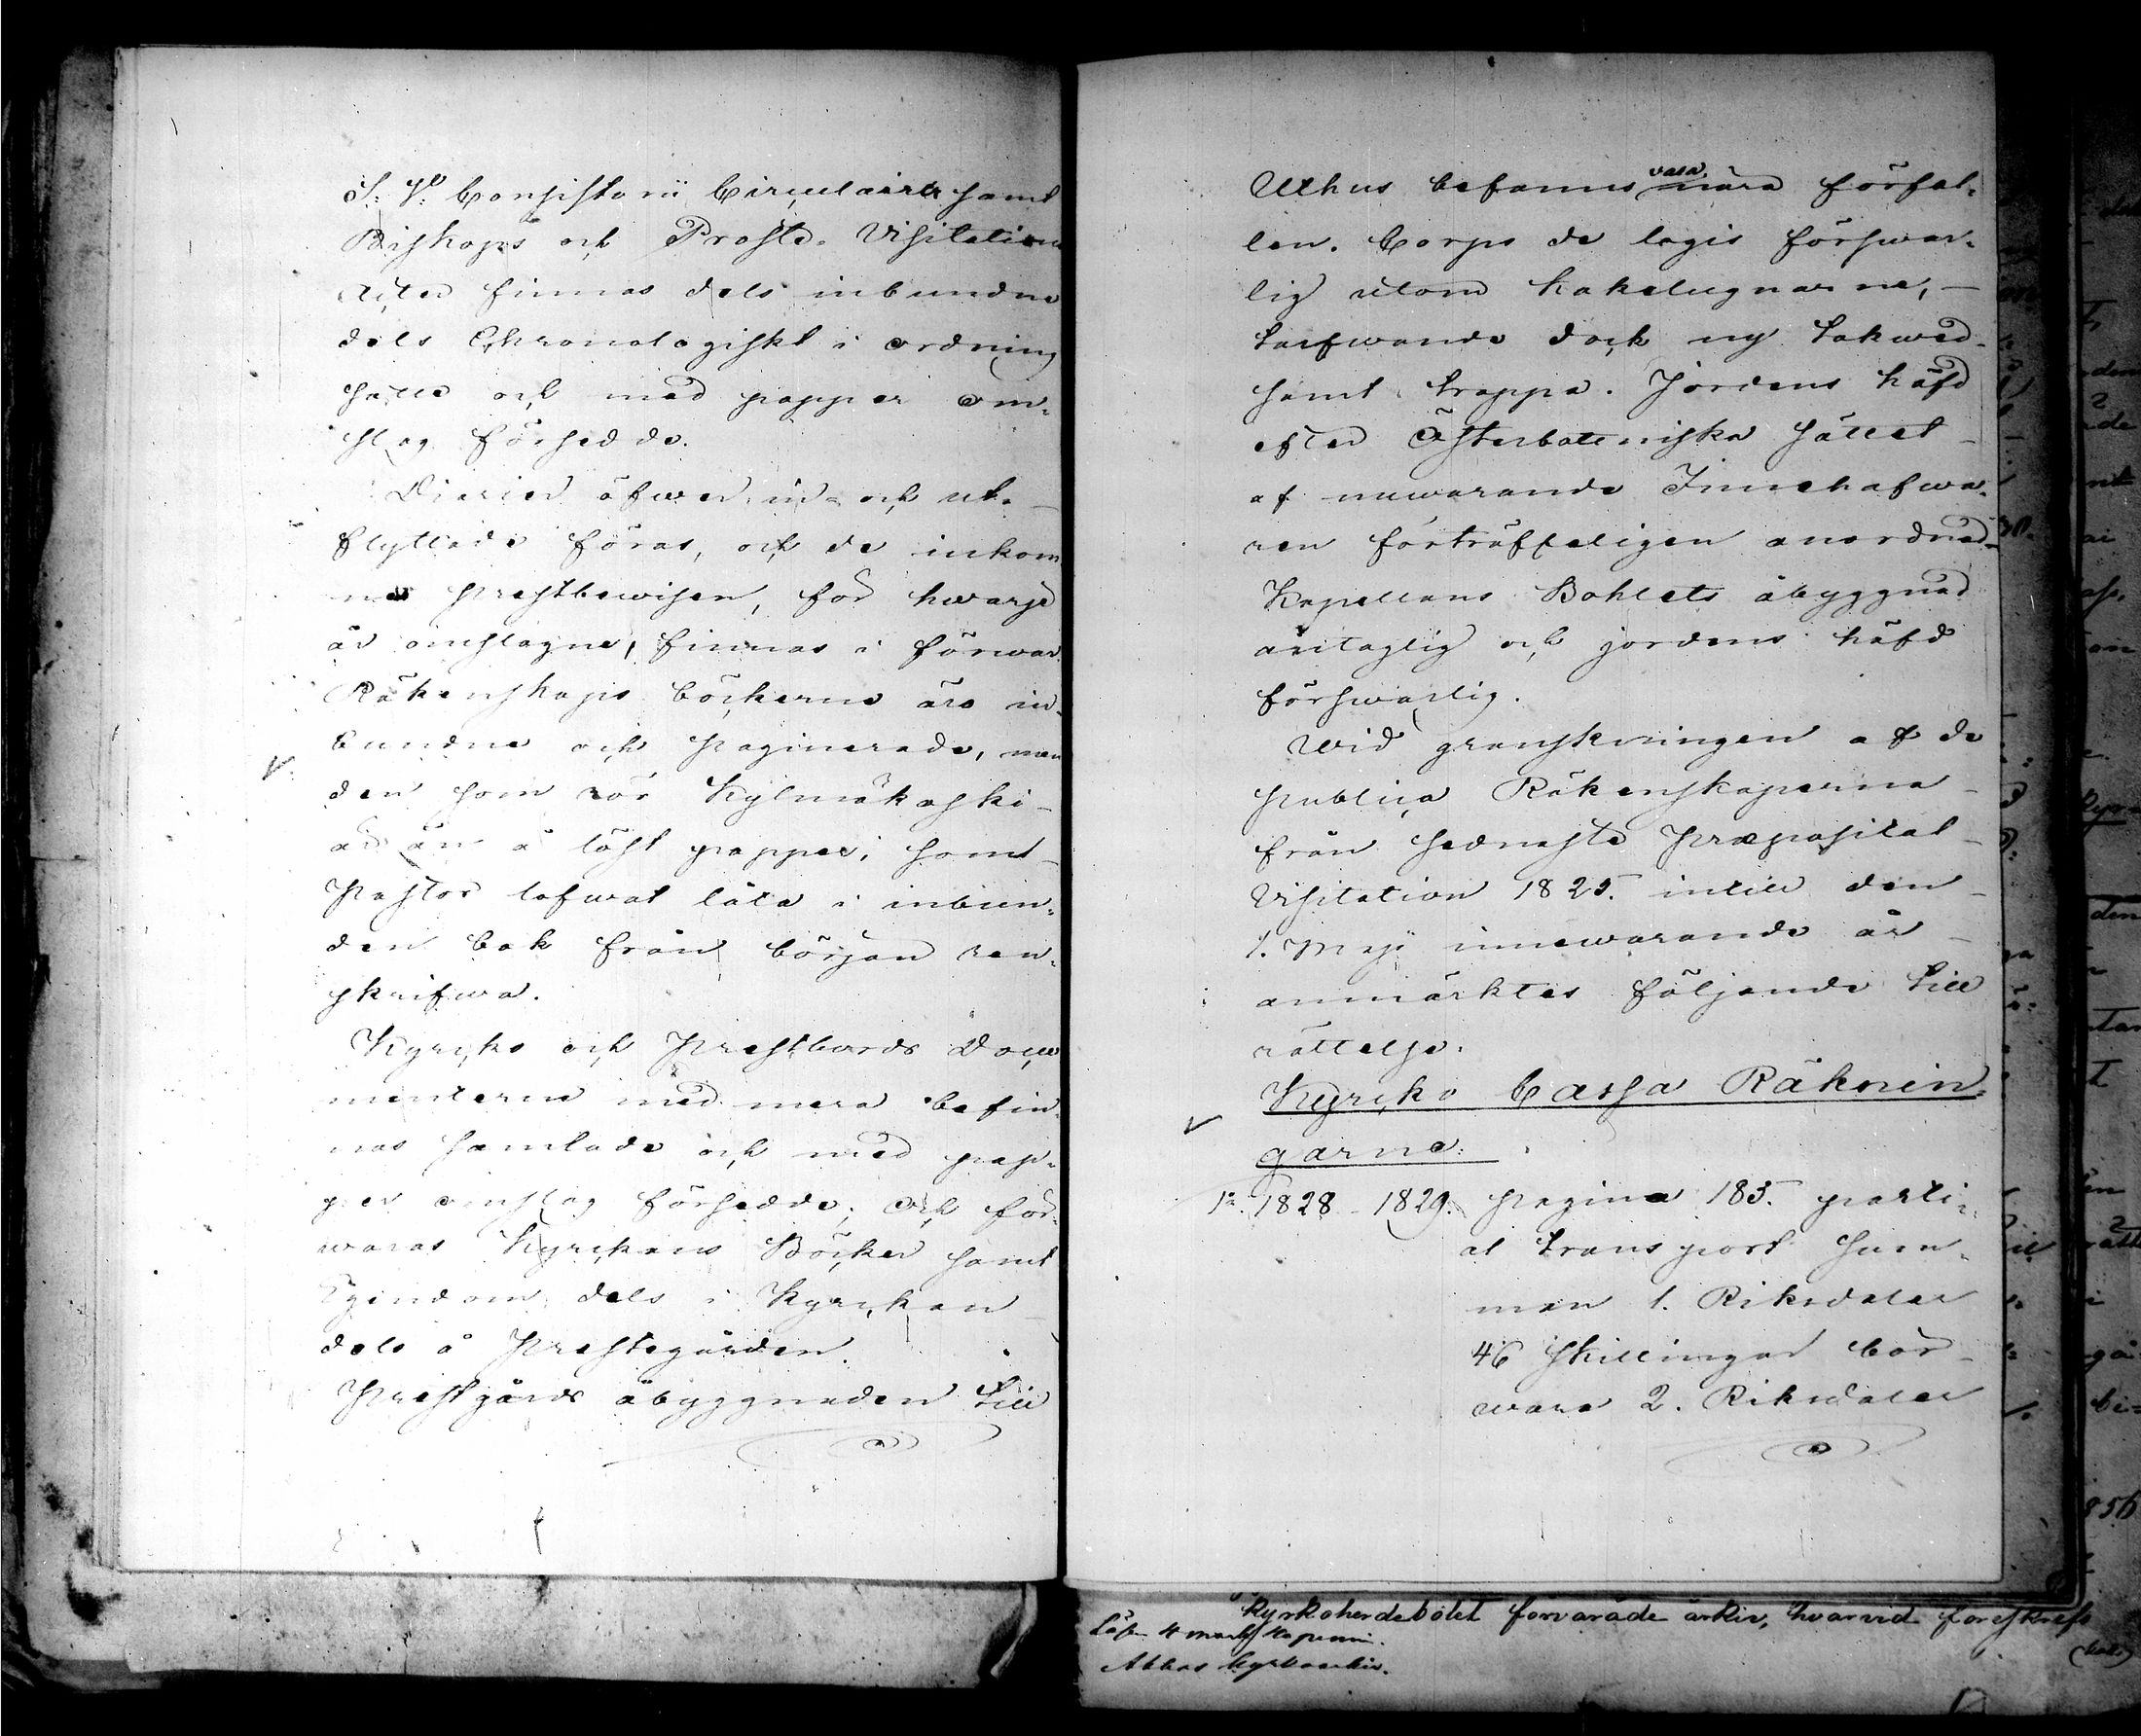 S: V: Consistorii Circulairer samt
Biskops och Prosts Visitations
Acter finnas dels inbundne
dels Chronologiskt i ordning
satte och med papper om-
slag försedde.
Diarier öfwer in- och ut-
flyttade föras, och de inkom
ne prestbewisen, för hwarje
år omslagne, finnas i förwar.
Räkenskaps böckerne äro in-
bundne och paginerade, men
den som rör Kylmäkoski
är än å löst papper; samt
Pastor lofwat låta i inbun-
den bok från början ren-
skrifwa.
Kyrcko och Prestbords Docu
menterne med mera befin-
nas samlade och med pap-
per omslag försedde; och för-
waras Kyrckans Böcker samt
Egendom dels i Kyrckan
dels å Prestegården.
Prestgårds åbyggnaden till
Uthus befanns vara nära förfal-
len. Corps de logis förswar-
lig utom kakelugnarne,
tarfwande dock ny takwed
samt trappa. Jordens häfd
efter Österbottniska sättet
af nuwarande Innehafwa-
ren förträffeligen anordnad
Kapellans Bohlets åbyggnad
antaglig och jordens häfd
förswarlig.
Wid granskningen af de
publica Räkenskaperna
från sednaste Præposital
Visitation 1825. intill den
1. Maji innewarande år
anmärktes följande till
rättelse.
Kyrcko Cassa Räknin-
garne.
1o. 1828-1829. pagina 185. parti-
al transport sum-
man 1. Riksdaler
46 skillingar bör
wara 2. Riksdaler
Kyrkoherdebolet förvarade arkiv, hvarvid föreskrefs